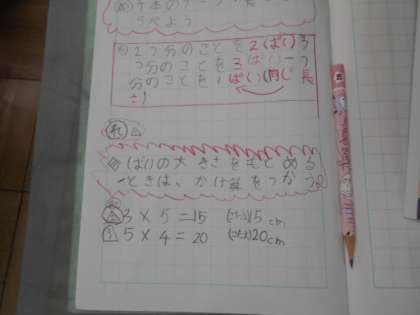 本のテープの
らべよう
2つ分のことを2ばい3
つ分のことを3ばい一つ
分のことを1ばい(同じ長
さ)
れ
ばいの大きさをもとめる
ときは、かけ算をつかう。
3×5=15 (こたえ)15cm
5×4=20 (こたえ)20cm